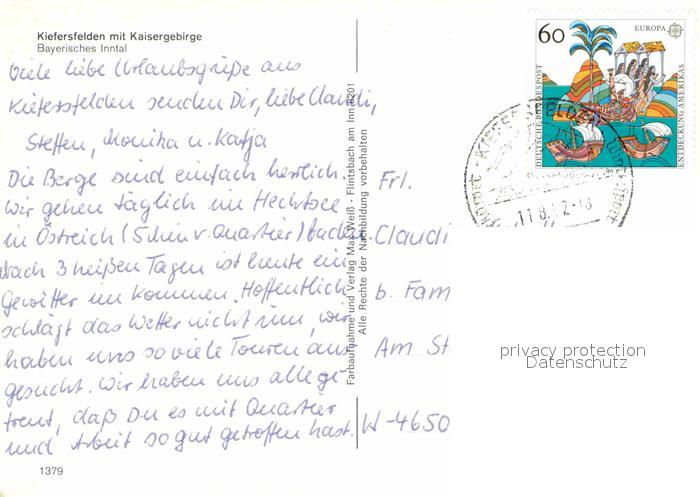 Kiefersfelden mit Kaisergebirge
Bayerisches Inntal
Viele liebe Urlaubsgrüße aus
Kiefersfelden senden Dir, liebe Claudi,
Steffen, Monika u. Katja
Die Berge sind einfach herrlich.
Wir gehen täglich im Hechtsee
in Östreich (5 hin v. Quartier) baden.
Nach 3 heißen Tagen ist heute ein
Gewitter im Kommen. Hoffentlich
schlägt das Wetter nicht um, wir
haben uns so viele Touren aus-
gesucht. Wir haben uns alle ge-
freut, daß Du es mit Quartier
und Arbeit so gut getroffen hast.
1379
Farbaufnahme und Verlag Max Weiß - Flintsbach am Inn 8201
Alle Rechte der Nachbildung vorbehalten
60
EUROPA
DEUTSCHE BUNDESPOST
ENTDECKUNG AMERIKAS
Frl.
Claudi
b. Fam
Am St
W-4650
privacy protection
Datenschutz